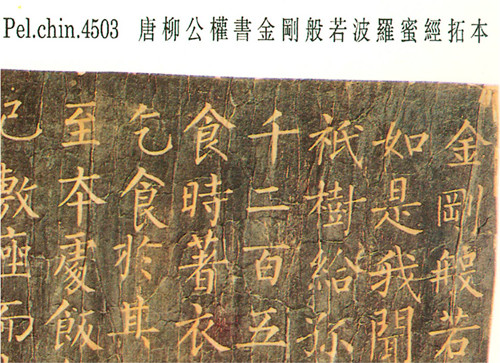 Pel.chin.4503 唐柳公權書金剛般若波羅蜜經拓本
金剛般若
如是我聞
祇樹給孤
千二百五
食時著衣
乞食於其
至本處飯
已敷座而